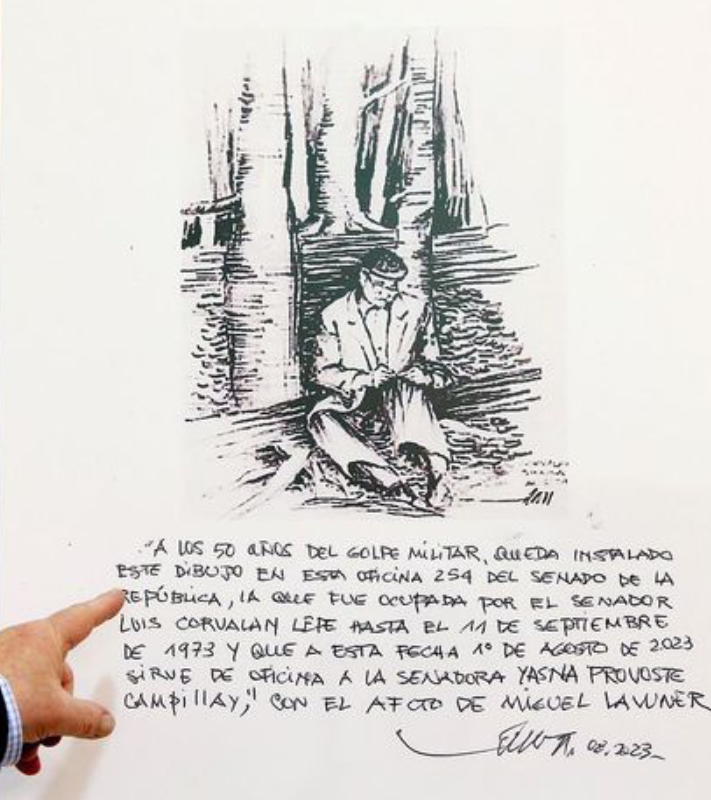 "A LOS 50 AÑOS DEL GOLPE MILITAR, QUEDA INSTALADO
ESTE DIBUJO EN ESTA OFICINA 254 DEL SENADO DE LA
REPÚBLICA, LA QUE FUE OCUPADA POR EL SENADOR
LUIS CORVALAN LEPE HASTA EL 11 DE SEPTIEMBRE
DE 1973 Y QUE A ESTA FECHA 1º DE AGOSTO DE 2023
SIRVE DE OFICINA A LA SENADORA YASNA PROVOSTE
CAMPILLAY," CON EL AFECTO DE MIGUEL LAWNER
02.2023